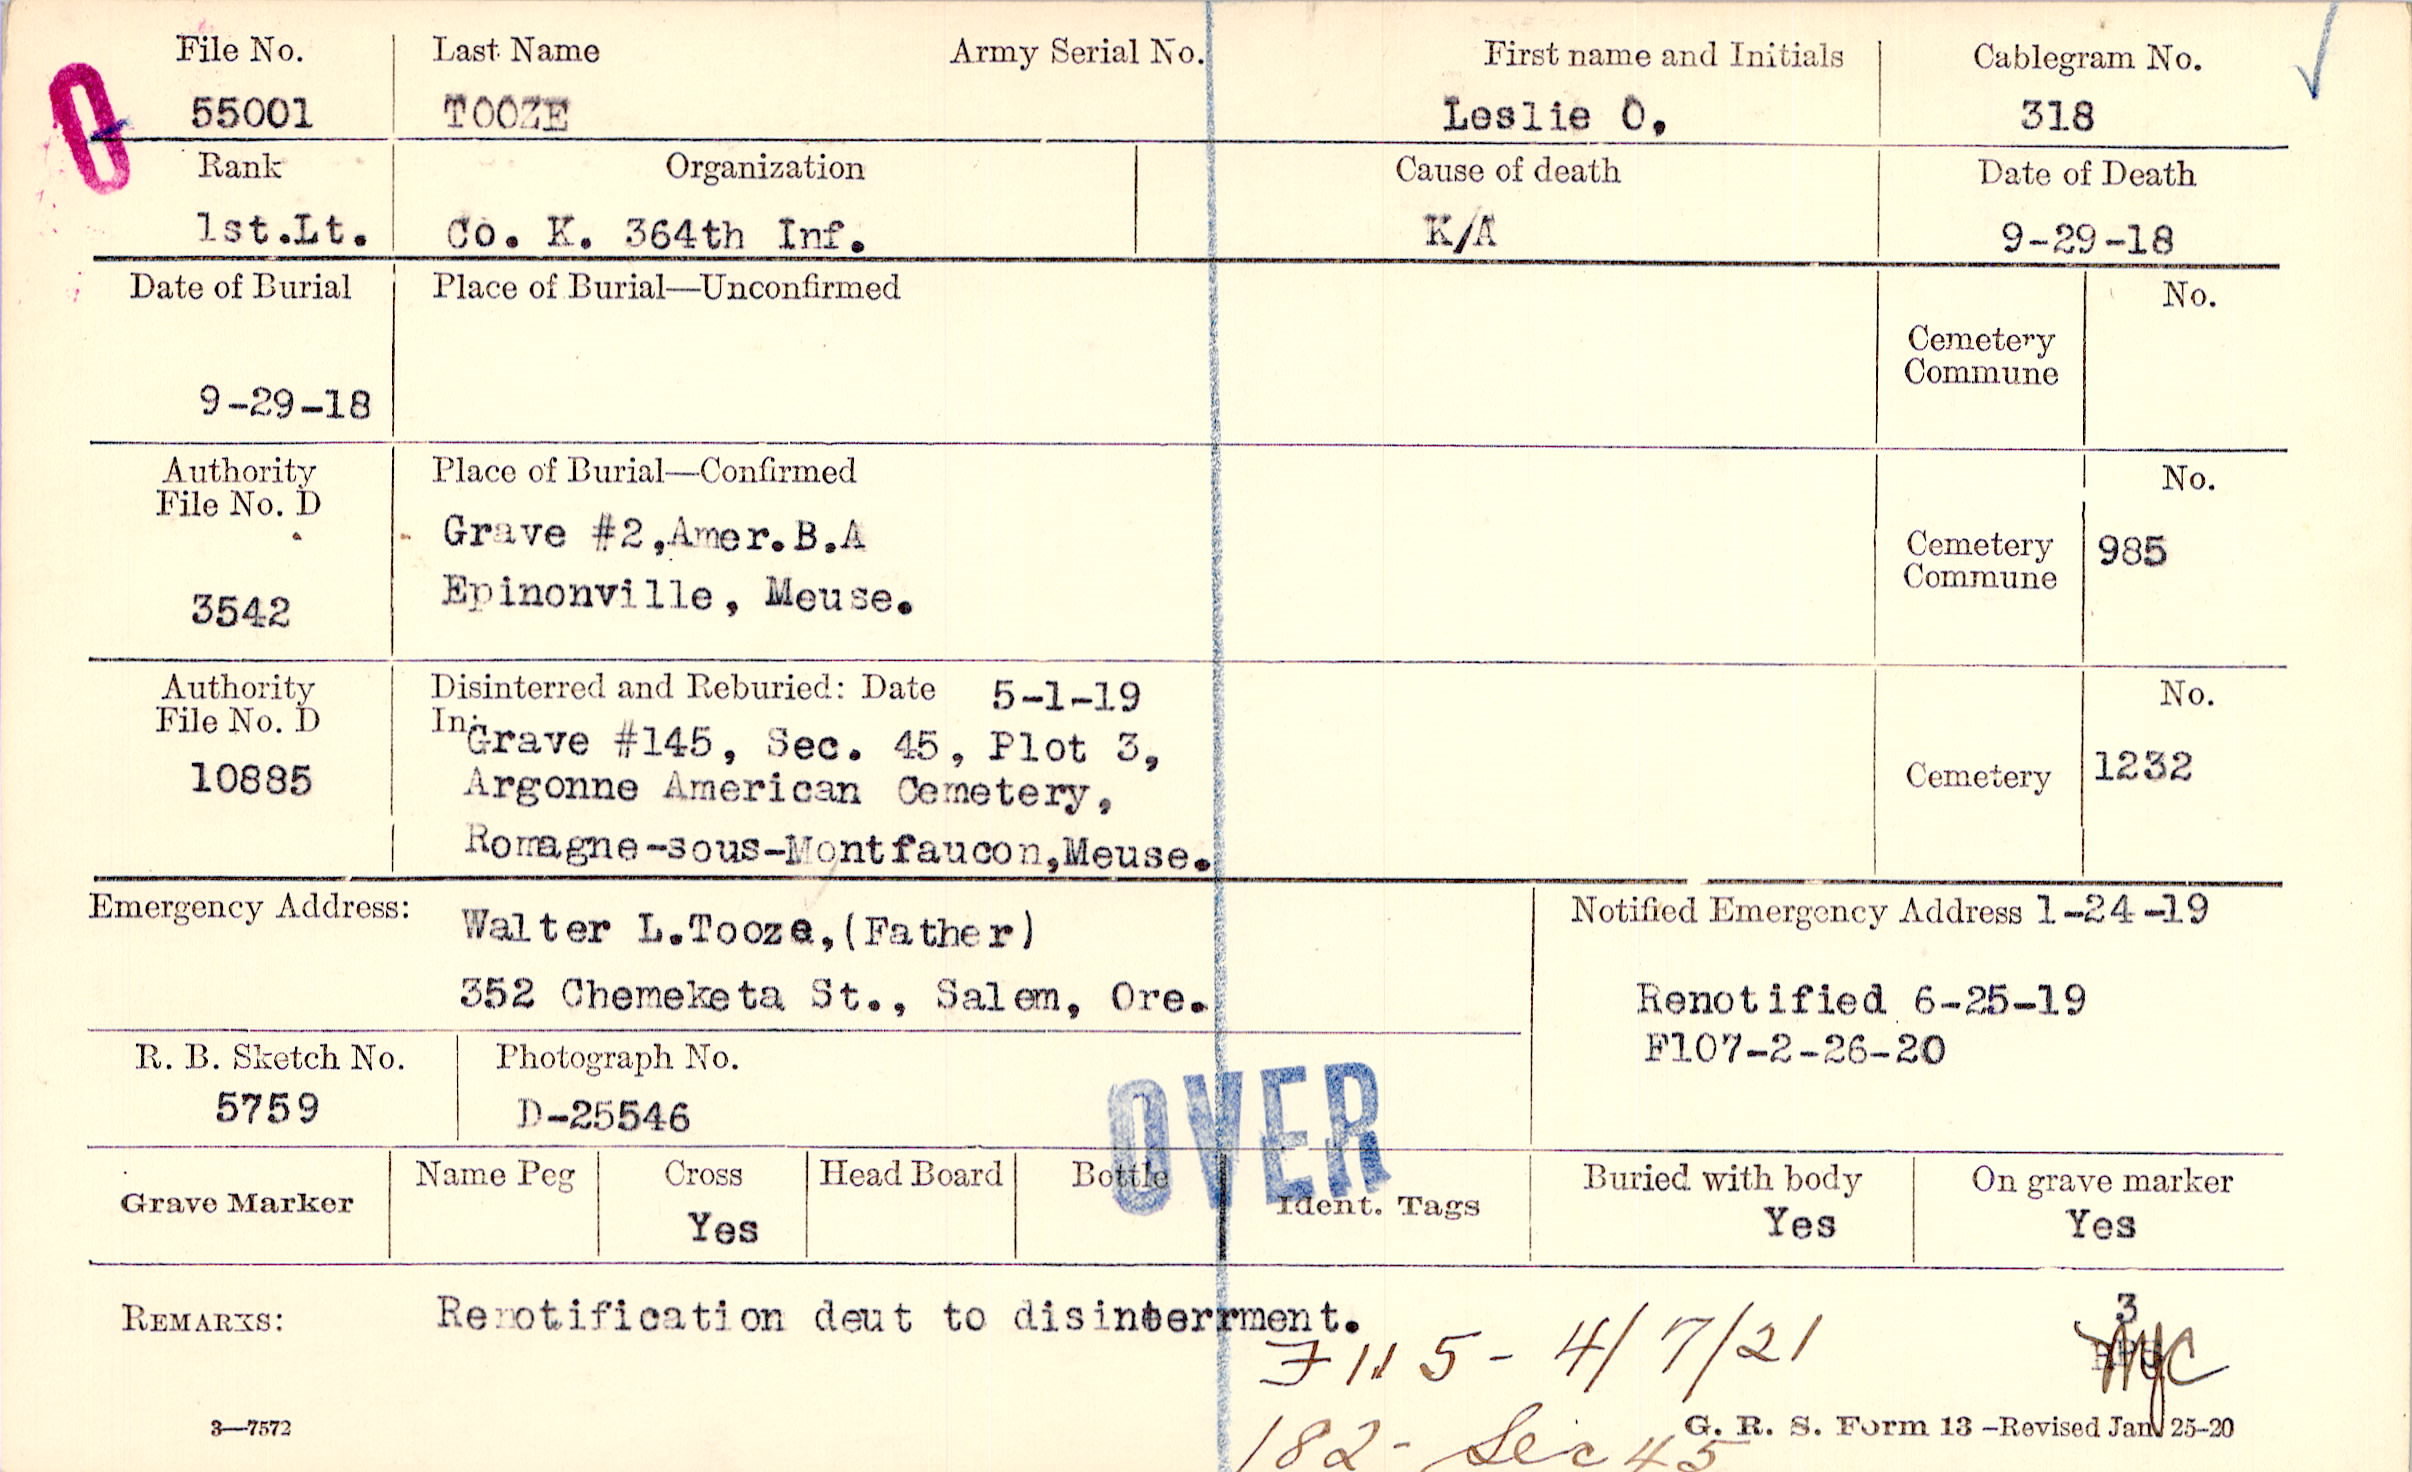 File No. Last Name Army Serial No. First name and Initials Cablegram No.
0
55001 TOOZE Leslie O. 318
Rank Organization Cause of death Date of Death
1st.Lt. Co. K. 364th Inf. K/A 9-29-18
Date of Burial Place of Burial—Unconfirmed No.
Cemetery
Commune
9-29-18
Authority Place of Burial—Confirmed No.
File No. D
Grave #2,Amer.B.A
Cemetery 985
Commune
3542 Epinonville, Meuse.
Authority Disinterred and Reburied: Date 5-1-19 No.
File No. D In:
Grave #145, Sec. 45, Plot 3,
10885 Argonne American Cemetery, Cemetery 1232
Romagne-sous-Montfaucon,Meuse.
Emergency Address: Walter L.Tooze,(Father) Notified Emergency Address 1-24-19
352 Chemeketa St., Salem, Ore. Renotified 6-25-19
F107-2-26-20
R. B. Sketch No. Photograph No.
5759 D-25546
OVER
Grave Marker Name Peg Cross Head Board Bottle Ident. Tags Buried with body On grave marker
Yes Yes Yes
REMARKS: Renotification deut to disinterrment. 3
F115 - 4/7/21
3—7572 G. R. S. Form 13 –Revised Jan. 25-20
182 - Sec 45